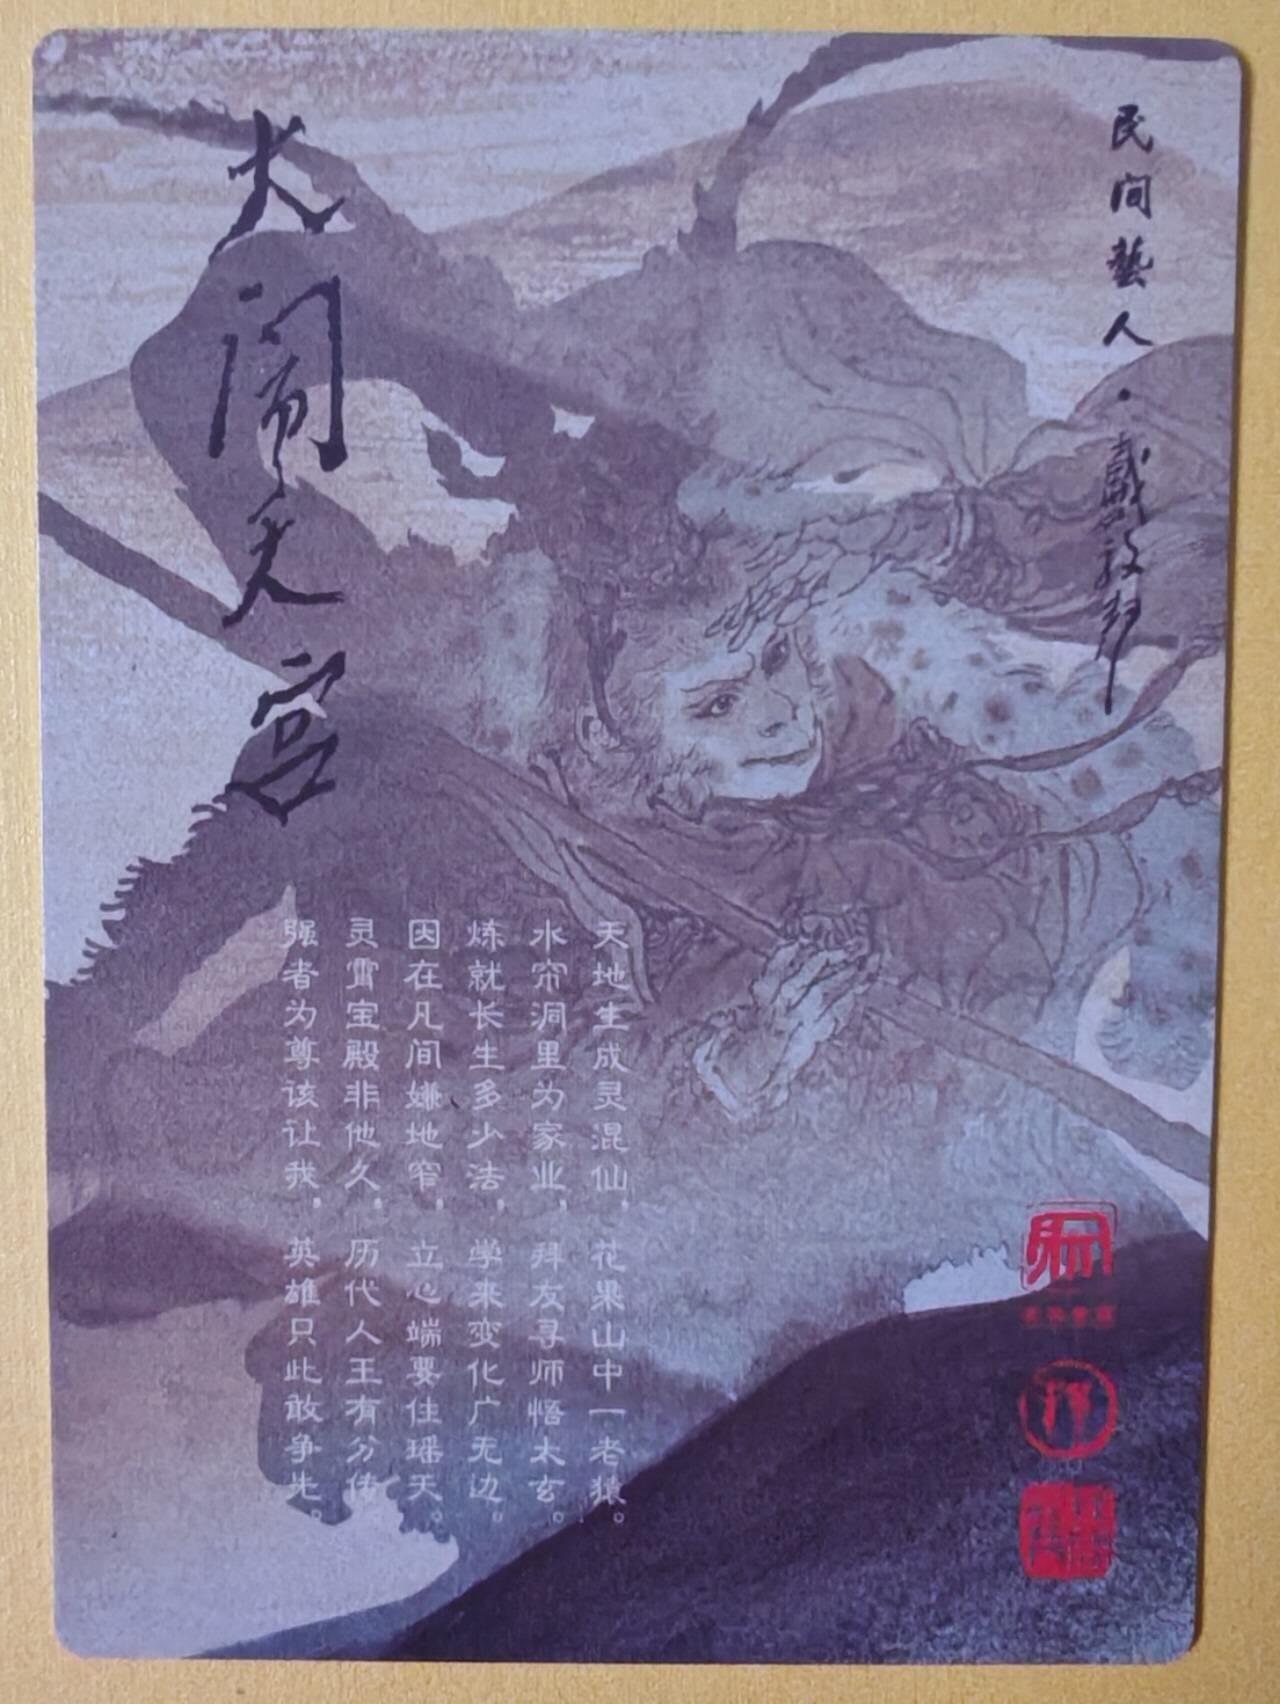 民间藝人·戴敦邦
大闹天宫
天地生成灵混仙，花果山中一老猿。
水帘洞里为家业，拜友寻师悟太玄。
炼就长生多少法，学来变化广无边。
因在凡间嫌地窄，立心端要住瑶天。
灵霄宝殿非他久，历代人王有分传。
强者为尊该让我，英雄只此敢争先。